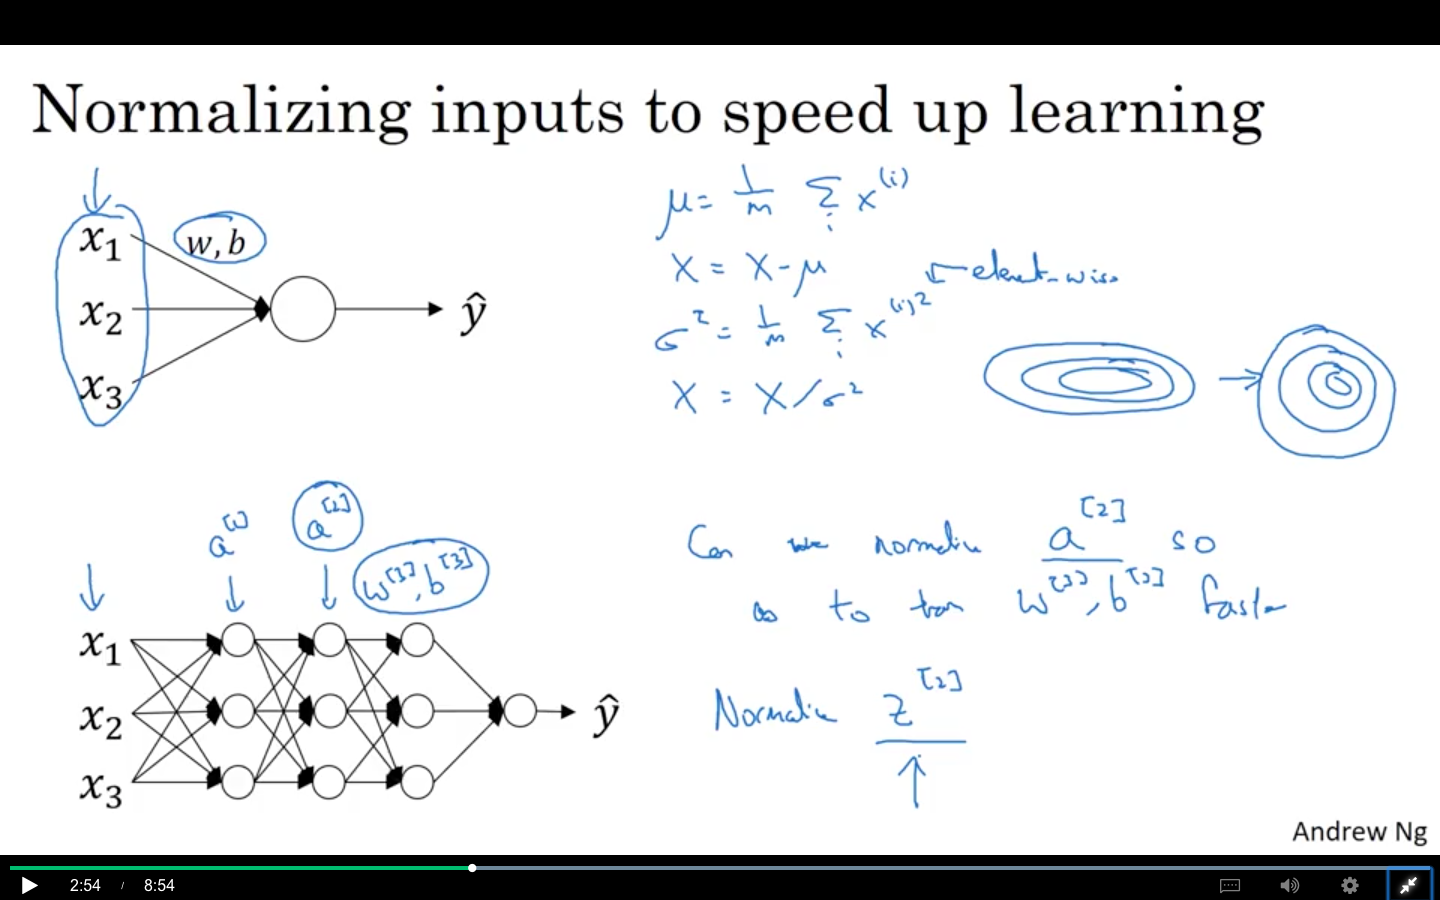 Normalizing inputs to speed up learning
x₁
w, b
x₂
x₃
ŷ
μ = 1/m Σᵢ x⁽ⁱ⁾
X = X - μ
σ² = 1/m Σᵢ x⁽ⁱ⁾² ← element-wise
X = X / σ²
a^[1] a^[2] w^[3], b^[3]
x₁
x₂
x₃
ŷ
Can we normalize a^[2] so
as to train w^[3], b^[3] faster
Normalize z^[2]
Andrew Ng
2:54 / 8:54